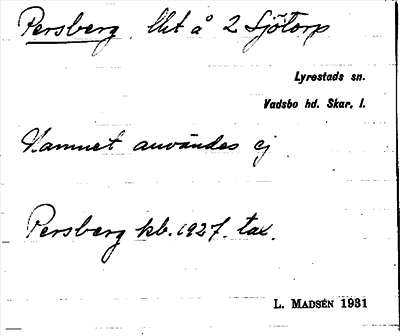 Persberg. Lht å 2 Sjötorp
Lyrestads sn.
Vadsbo hd. Skar. l.
Namnet användes ej
Persberg kb. 1927. tax.
L. MADSÉN 1931